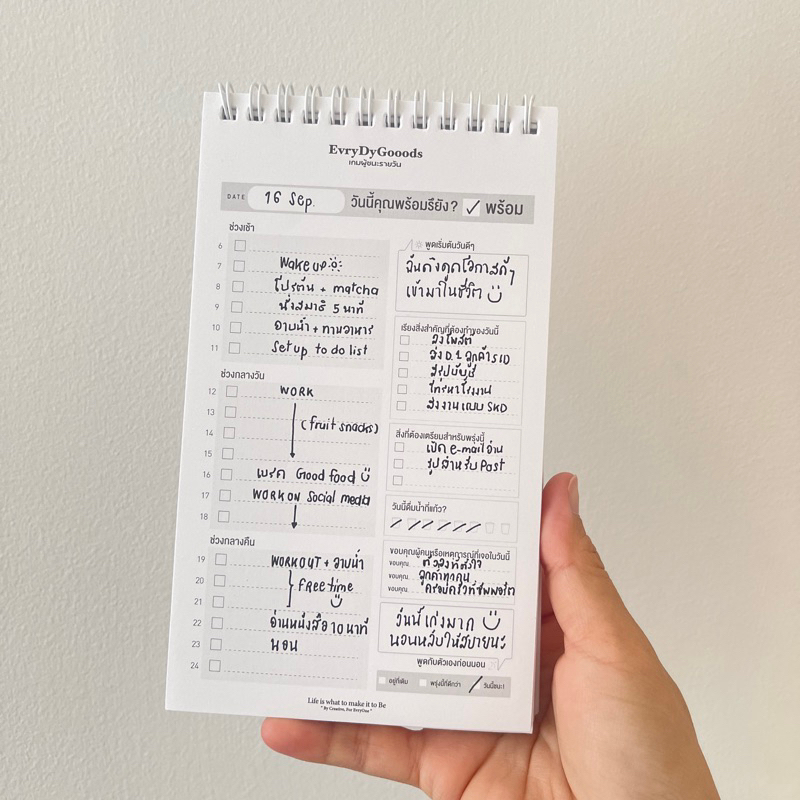 EvryDyGooods
เกมผู้ชนะรายวัน
DATE 16 Sep. วันนี้คุณพร้อมรึยัง? ✓ พร้อม
ช่วงเช้า
6
7 Wake up
8 โปรตีน + matcha
9 นั่งสมาธิ 5 นาที
10 อาบน้ำ + ทานอาหาร
11 Set up to do list
ช่วงกลางวัน
12 WORK
13 (fruit snacks)
14
15
16 เบรค Good food
17 WORK ON Social media
18
ช่วงกลางคืน
19 WORKOUT + อาบน้ำ
20 free time
21
22 อ่านหนังสือ 10 นาที
23 นอน
24
พูดเริ่มต้นวันดีๆ
ฉันดึงดูดโอกาสดีๆ
เข้ามาในชีวิต
เรียงสิ่งสำคัญที่ต้องทำของวันนี้
ลงโพสต์
ส่ง D.1 ลูกค้า SID
สรุปบัญชี
โทรหาโรงงาน
ส่งงานแบบ SKD
สิ่งที่ต้องเตรียมสำหรับพรุ่งนี้
เปิด e-mail อ่าน
รูปสำหรับ Post
วันนี้ดื่มน้ำกี่แก้ว?
ขอบคุณผู้คนหรือเหตุการณ์ที่เจอในวันนี้
ขอบคุณ ตัวเองที่ตั้งใจ
ขอบคุณ ลูกค้าทุกคน
ขอบคุณ ครอบครัวที่ซัพพอร์ต
วันนี้เก่งมาก
นอนหลับให้สบายนะ
พูดกับตัวเองก่อนนอน
อยู่ที่เดิม พรุ่งนี้ที่ดีกว่า วันนี้ชนะ!!
Life is what to make it to Be
" By Creative, For EvryOne "